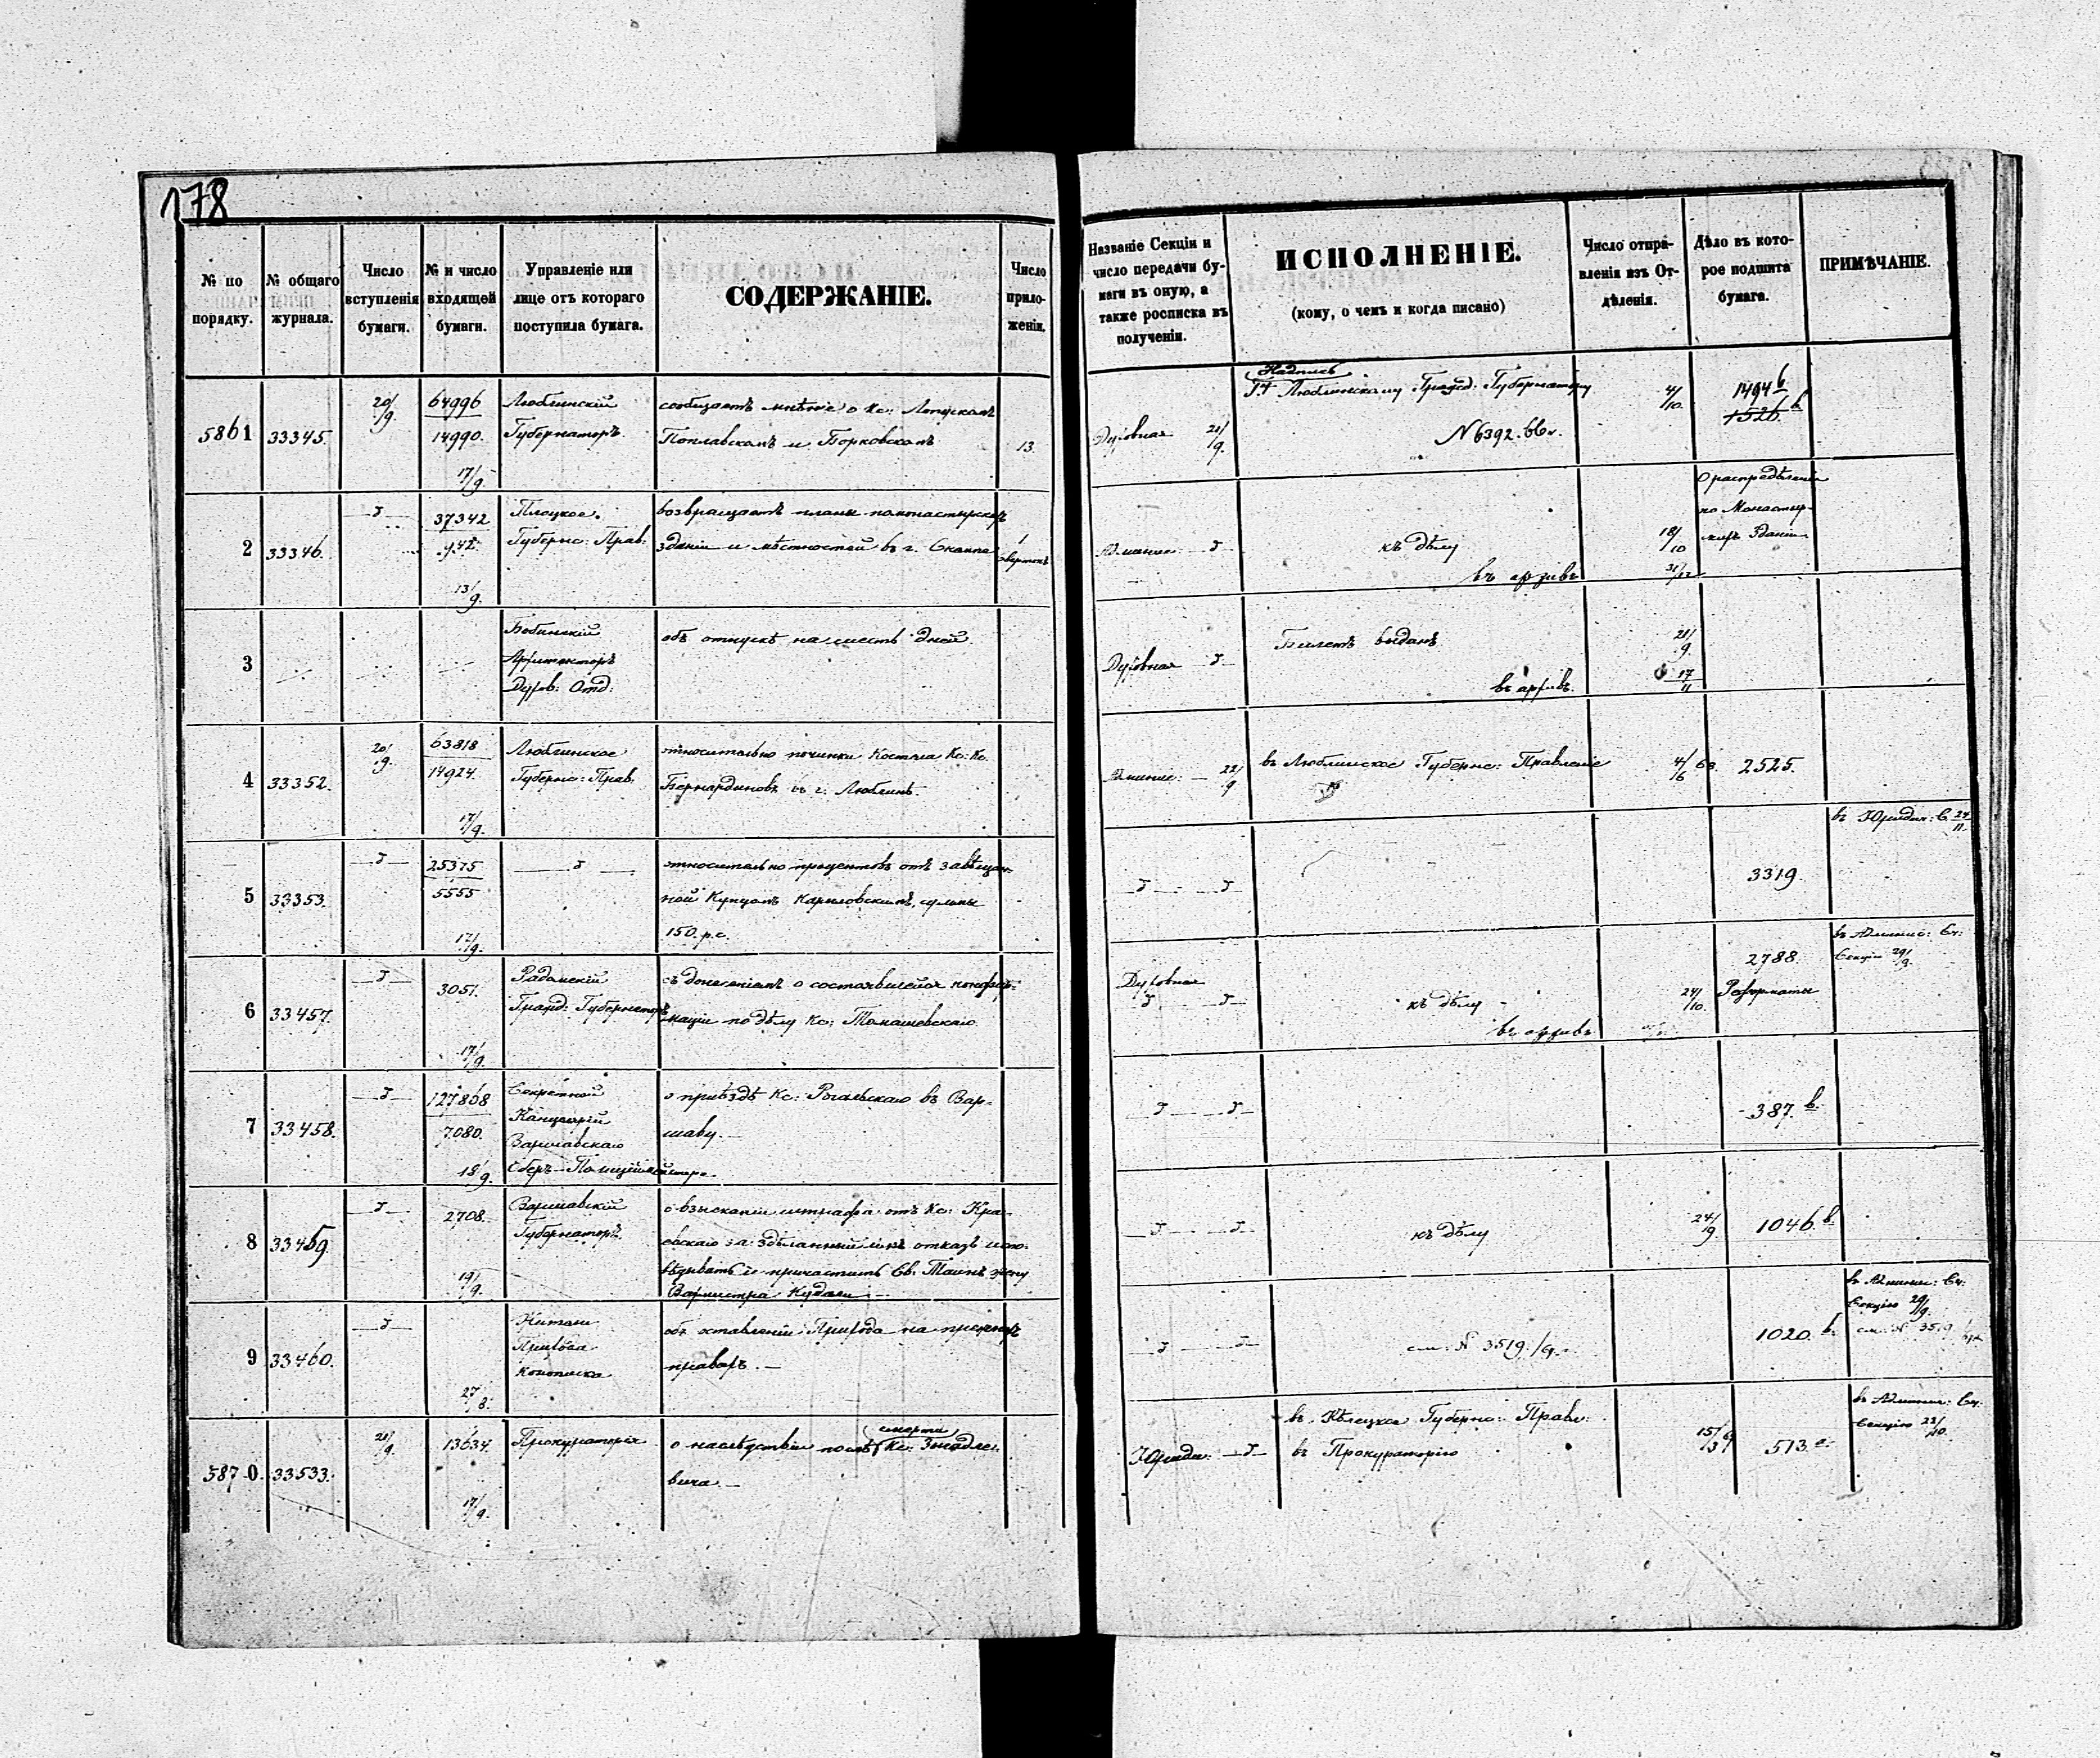 178
№ по порядку.
№ общаго журнала.
Число вступленія бумаги.
№ и число входящей бумаги.
Управленіе или лице отъ котораго поступила бумага.
СОДЕРЖАНІЕ.
Число приложеній.
Названіе Секціи и число передачи бумаги въ оную, а также росписка въ полученіи.
ИСПОЛНЕНІЕ.
(кому, о чемъ и когда писано)
Число отправленія изъ Отдѣленія.
Дѣло въ которое подшита бумага.
ПРИМѢЧАНІЕ.
5861
33345.
20/9.
64996
14990.
17/9.
Люблинскій
Губернаторъ.
сообщаетъ мнѣніе о Кс:
Поплавскомъ и Борковскомъ
13.
Духовная 21/9.
Надпись
Люблинскому Гражд: Губернатору
N 6392.
4/10.
1494 b
1526. b
2
33346.
37342
13/9.
Плоцкое
Губернс: Прав:
возвращаетъ планы помонастырскихъ
зданій и мѣстностей въ г. Скемпе
1
къ дѣлу
въ архивъ
18/10
31/12
О распредѣленіи
по Монастыр-
скихъ Зданій
3
Бобинскій
Архитекторъ
Духов: Отд:
объ отпускѣ на шесть дней
Духовная
Билетъ выданъ
въ архивъ.
21/9.
17/11
4
33352.
20/9.
63818
14924.
17/9.
Люблинское
Губернс: Прав.
относительно починки Костела Кс: Кс.
Бернардиновъ въ г. Люблинѣ.
22/9
въ Люблинское Губернс: Правленіе
4/6 68.
2525.
5
33353.
25375
5555
17/9.
относительно процентовъ отъ завѣщан-
ной Купцомъ Карповскимъ, суммы
150. р. с.
3319.
въ Юридич: С. 24/11.
6
33457.
3051.
17/9.
Радомскій
Гражд: Губернаторъ
съ донесеніемъ о состоявшейся конфир-
маціи по дѣлу Кс: Томашевскаго
Духовная
къ дѣлу
въ архивъ
24/10.
2788.
Секцію 29/9.
7
33458.
127868
7080.
18/9.
Секретной
Канцеляріи
Варшавскаго
Оберъ-Полицеймейстера
о пріѣздѣ Кс: Рогальскаго въ Вар-
шаву. —
387. b.
8
33459.
2708.
19/9.
Варшавскій
Губернаторъ.
о взысканіи штрафа отъ Кс: Кра-
евскаго за сдѣланный имъ отказъ испо-
вѣдывать и причастить Св. Таинъ жену
Вахмистра Кудали —
къ дѣлу
24/9.
1046. b.
9
33460.
27/8.
Жители
Прихода
объ оставленіи Прихода на прежнихъ
правахъ. —
см. N 3519.
1020. b.
Секцію 29/9.
см. N 3519
5870.
33533.
21/9.
13634.
17/9.
Прокураторія
о наслѣдствѣ послѣ смерти Кс:
вича. —
Юридич:
въ Кѣлецкое Губернс: Правл:
въ Прокураторію
513. c.
Секцію 23/10.